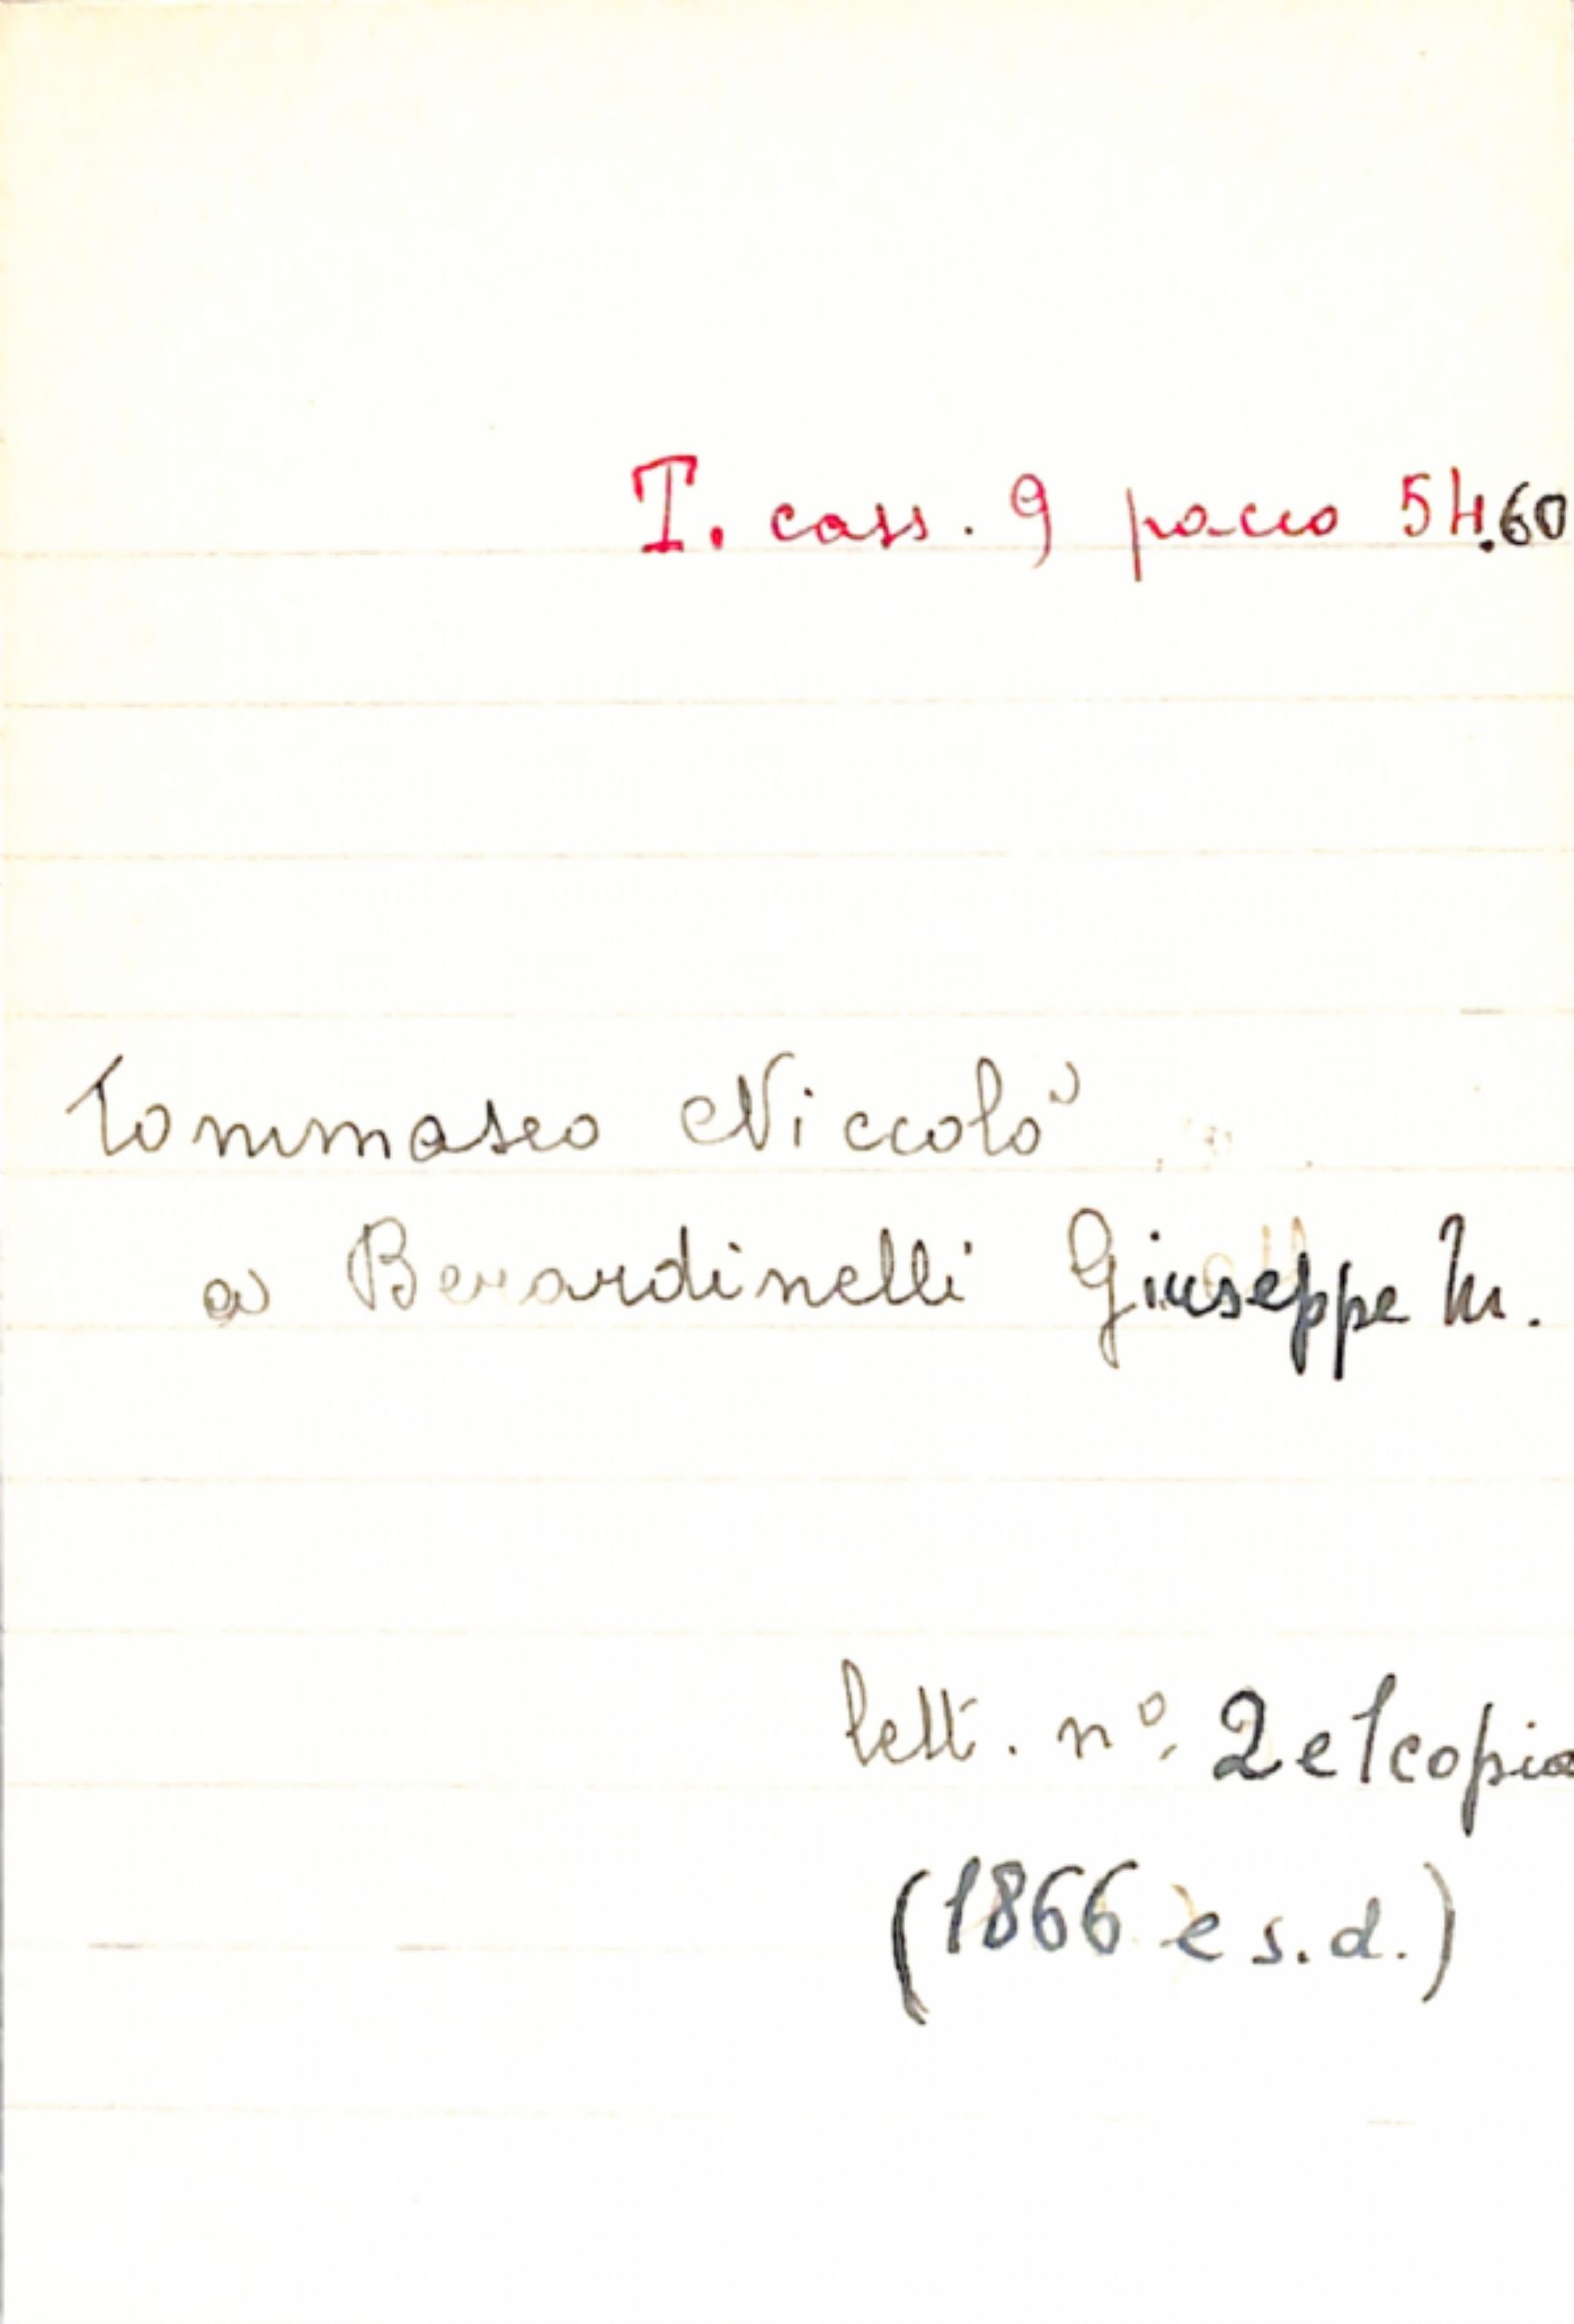 T. cass. 9 pacco 54.60
Tommaseo Niccolò
a Berardinelli Giuseppe M.
lett. nº. 2 e 1 copia
(1866 e s.d.)